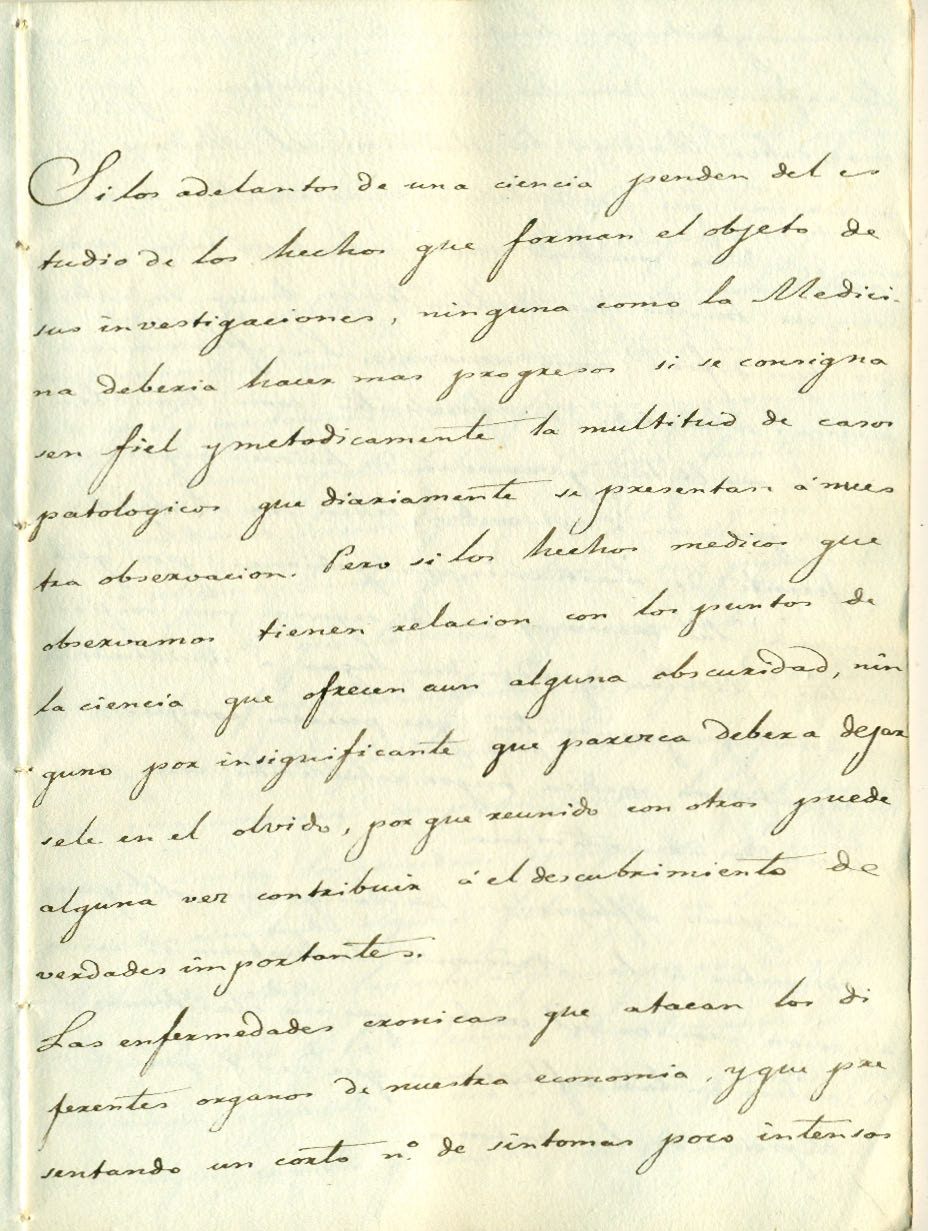 Si los adelantos de una ciencia penden del es
tudio de los hechos que forman el objeto de
sus investigaciones, ninguna como la Medici-
na deberia hacer mas progresos si se consigna
sen fiel y metodicamente la multitud de casos
patologicos que diariamente se presentan á nues
tra observacion. Pero si los hechos medicos que
observamos tienen relacion con los puntos de
la ciencia que ofrecen aun alguna obscuridad, nin
guno por insignificante que parezca debera dejar
sele en el olvido, por que reunido con otros puede
alguna vez contribuir á el descubrimiento de
verdades importantes.
Las enfermedades cronicas que atacan los di
ferentes organos de nuestra economia, y que pre
sentando un corto n.º de sintomas poco intensos